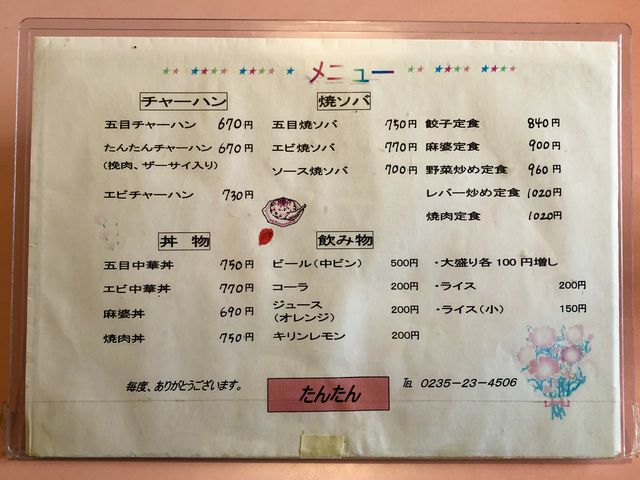 メニュー
チャーハン
五目チャーハン 670円
たんたんチャーハン 670円
(挽肉、ザーサイ入り)
エビチャーハン 730円
焼ソバ
五目焼ソバ 750円
エビ焼ソバ 770円
ソース焼ソバ 700円
餃子定食 840円
麻婆定食 900円
野菜炒め定食 960円
レバー炒め定食 1020円
焼肉定食 1020円
丼 物
五目中華丼 750円
エビ中華丼 770円
麻婆丼 690円
焼肉丼 750円
飲み物
ビール(中ビン) 500円
コーラ 200円
ジュース 200円
(オレンジ)
キリンレモン 200円
・大盛り各100円増し
・ライス 200円
・ライス(小) 150円
毎度、ありがとうございます。
たんたん
℡ 0235-23-4506